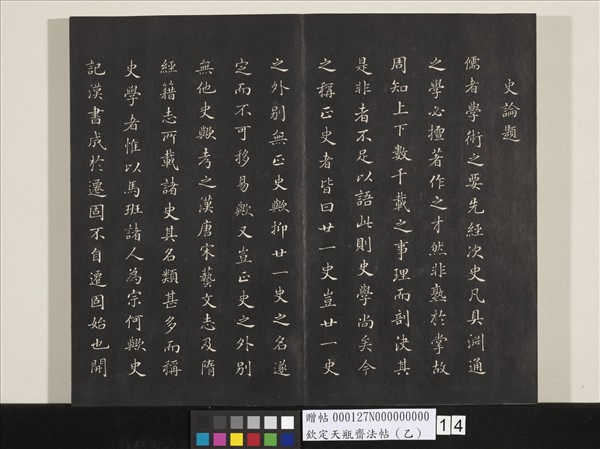 史論題
儒者學術之要先經次史凡具淵通
之學必擅著作之才然非熟於掌故
周知上下數千載之事理而剖決其
是非者不足以語此則史學尚矣今
之稱正史者皆曰廿一史豈廿一史
之外別無正史歟抑廿一史之名遂
定而不可移易歟又豈正史之外別
無他史歟考之漢唐宋藝文志及隋
經籍志所載諸史其名類甚多而稱
史學者惟以馬班諸人為宗何歟史
記漢書成於遷固不自遷固始也開
贈帖 000127N000000000
欽定天瓶齋法帖（乙）
14